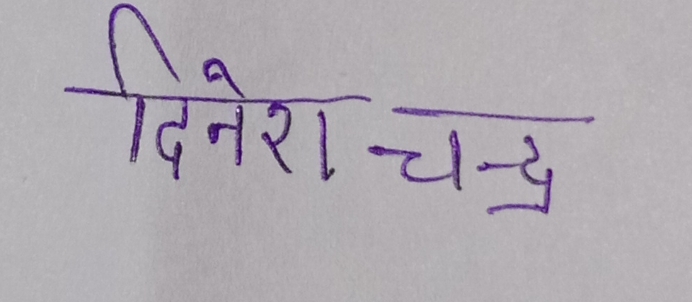 दिनेश चन्द्र